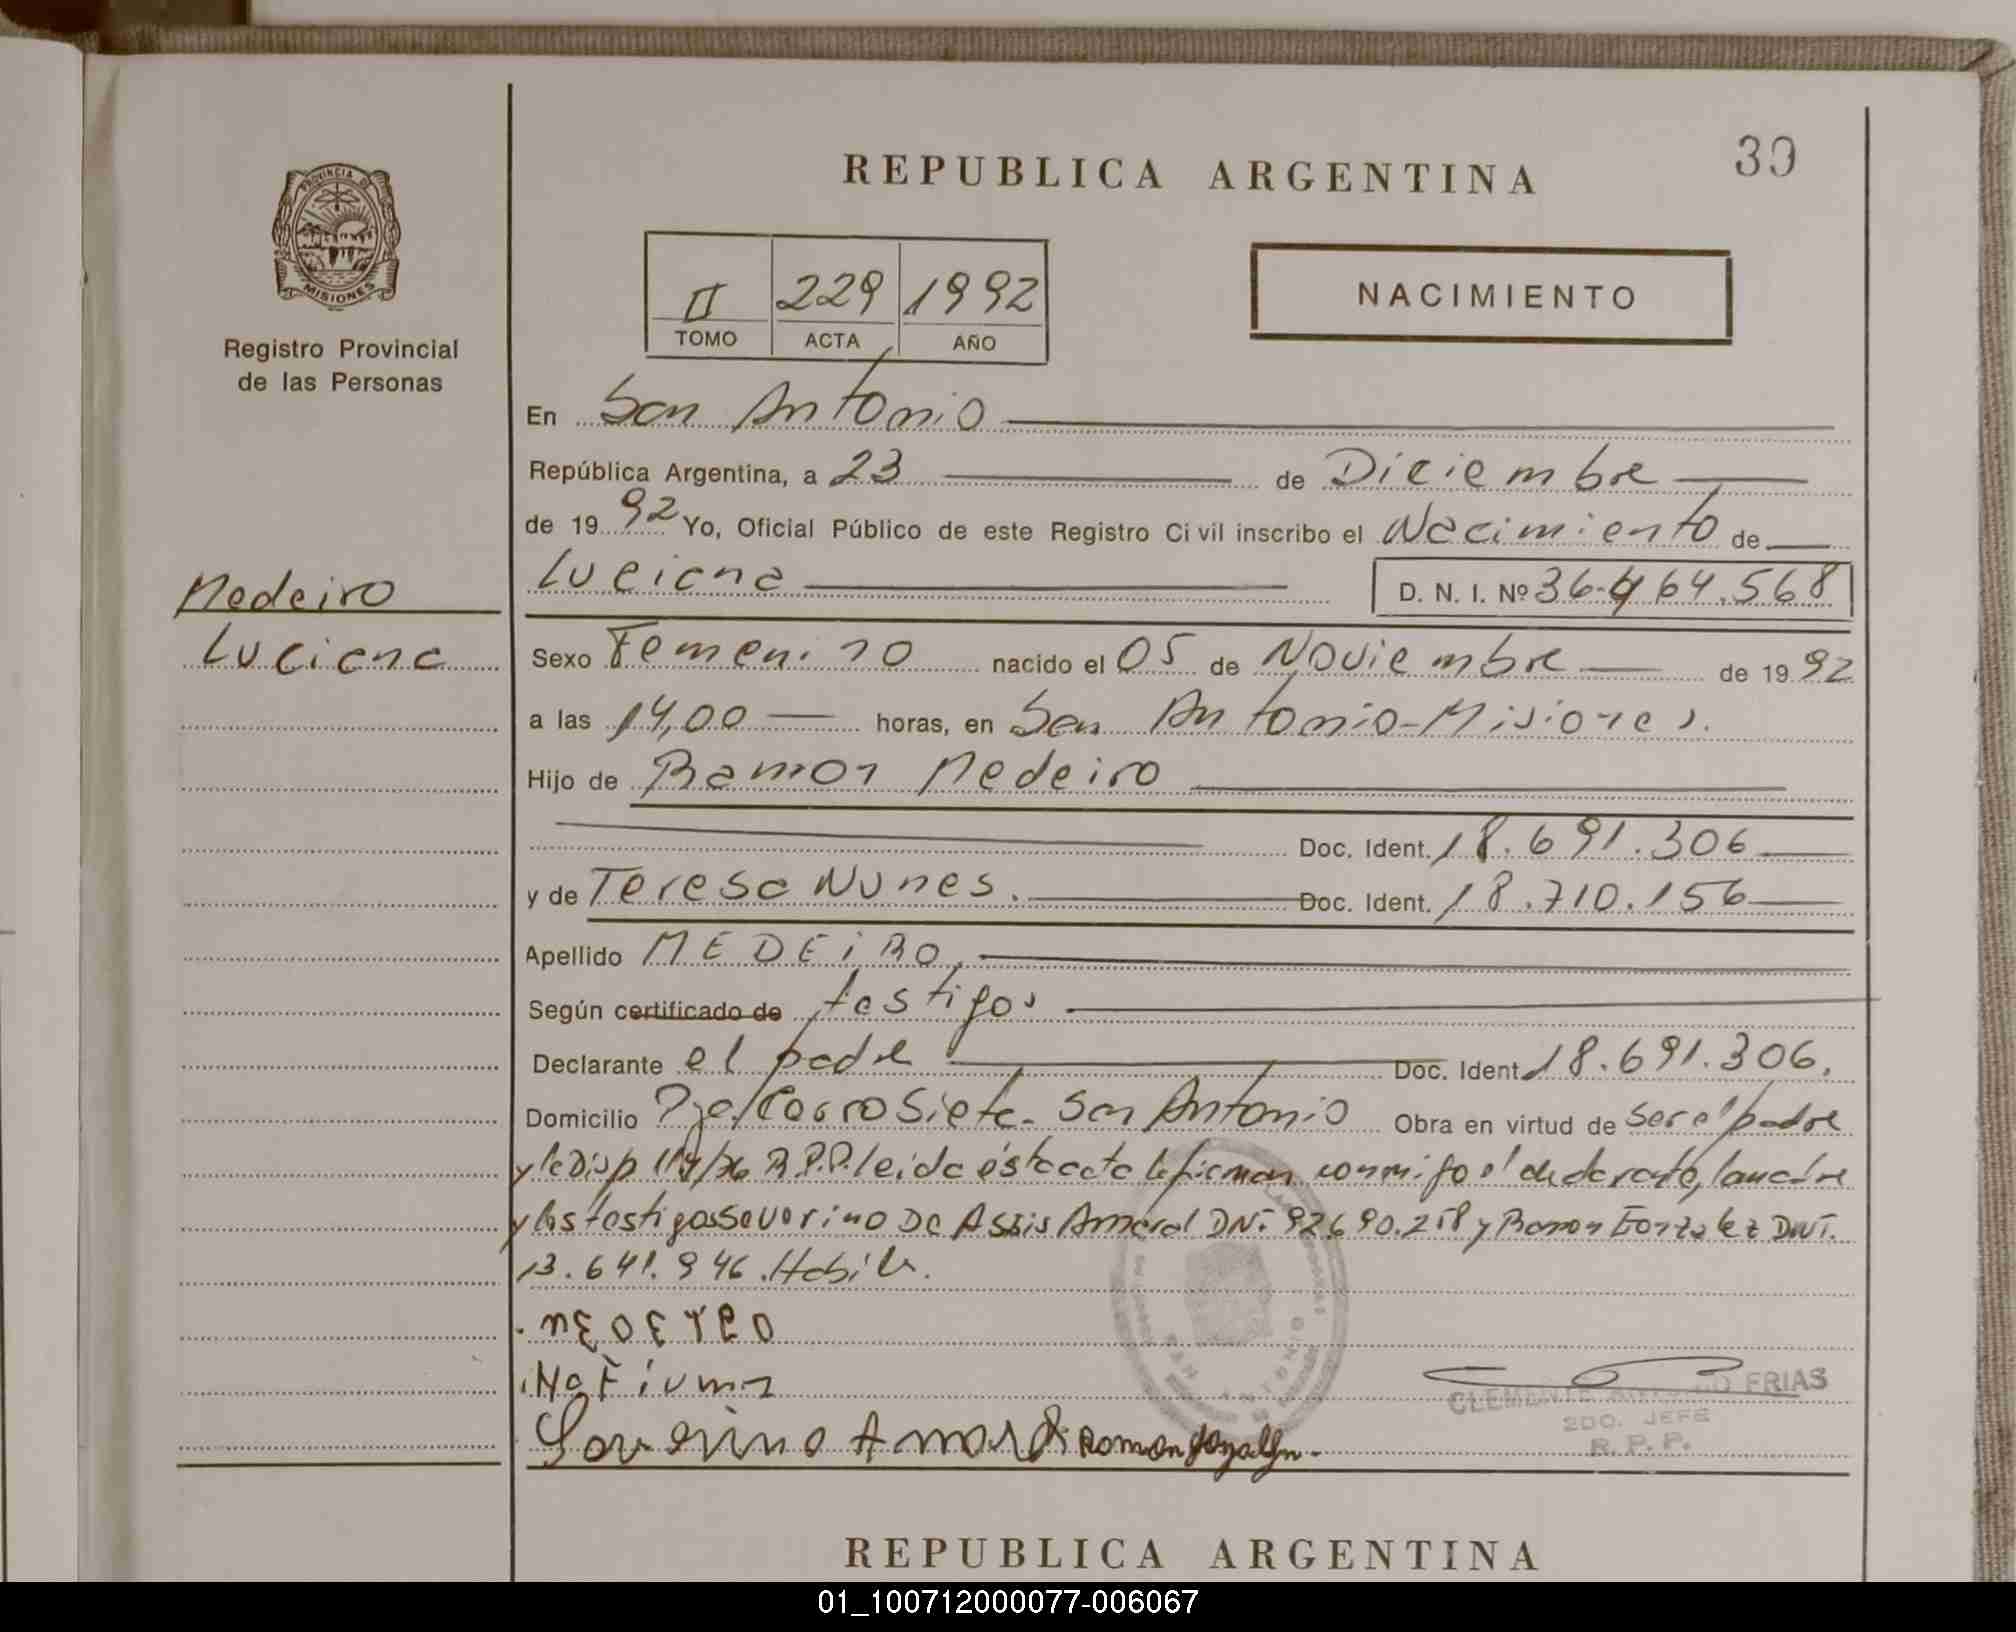 30
REPUBLICA ARGENTINA
PROVINCIA DE
MISIONES
Registro Provincial
de las Personas
II 229 1992
TOMO ACTA AÑO
NACIMIENTO
En San Antonio
República Argentina, a 23 de Diciembre
de 1992 Yo, Oficial Público de este Registro Civil inscribo el Nacimiento de
Luciana D. N. I. Nº 36.464.568
Medeiro
Luciana
Sexo Femenino nacido el 05 de Noviembre de 1992
a las 14,00 horas, en San Antonio-Misiones.
Hijo de Ramon Medeiro
Doc. Ident. 18.691.306
y de Teresa Nunes. Doc. Ident. 18.710.156
Apellido MEDEIRO.
Según certificado de testigos
Declarante el padre Doc. Ident. 18.691.306.
Domicilio Pje. Cocro Siete. San Antonio Obra en virtud de ser el padre
y la Disp R.P.P. leida ésta acta la firman conmigo el declarante, la madre
y los testigos Severino De Assis Amaral DNI. 92690.258 y Ramon Gonzalez DNI.
13.641.946. Habil
Severino Amaral Ramon
SAN ANTONIO
CLEMENTE ANTONIO FRIAS
2DO. JEFE
R. P. P.
REPUBLICA ARGENTINA
01_100712000077-006067